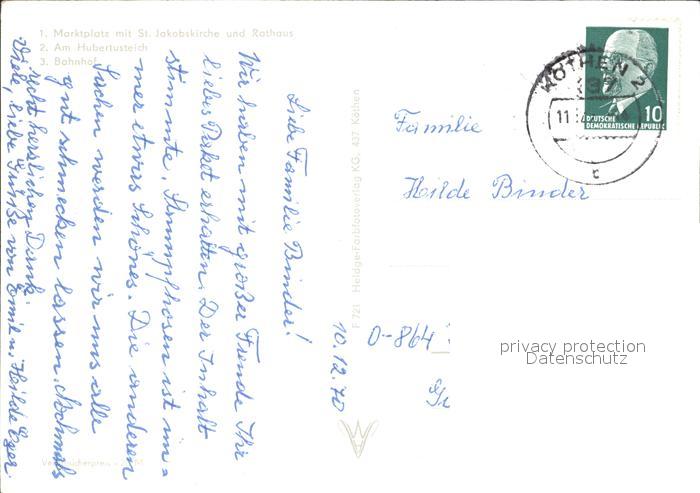 1. Marktplatz mit St. Jakobskirche und Rathaus
2. Am Hubertusteich
3. Bahnhof
10.12.70
Liebe Familie Binder!
Wir haben mit großer Freude Ihr
liebes Paket erhalten. Der Inhalt
stimmte, Strumpfhosen ist im=
mer etwas Schönes. Die anderen
Sachen werden wir uns alle
gut schmecken lassen. Nochmals
recht herzlichen Dank.
Viele, liebe Grüße von Emil u. Heilde Eger.
F 721 Heldge-Farbfotoverlag KG, 437 Köthen
KÖTHEN 2
437
11.
c
10
DEUTSCHE
DEMOKRATISCHE REPUBLIK
Familie
Heilde Binder
O-864
privacy protection
Datenschutz